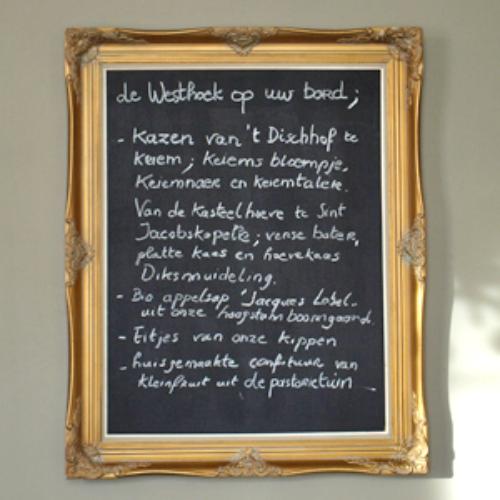 de Westhoek op uw bord;
- Kazen van 't Dischhof te
Keiem; Keiems bloempje,
Keiemnaer en keiemtaler.
Van de kasteelhoeve te Sint
Jacobskapelle; verse boter,
platte kaas en hoevekaas
Diksmuideling.
- Bio appelsap "Jacques Lobel"
uit onze hoogstamboomgaard.
- Eitjes van onze kippen
- huisgemaakte confituur van
kleinfruit uit de pastorietuin